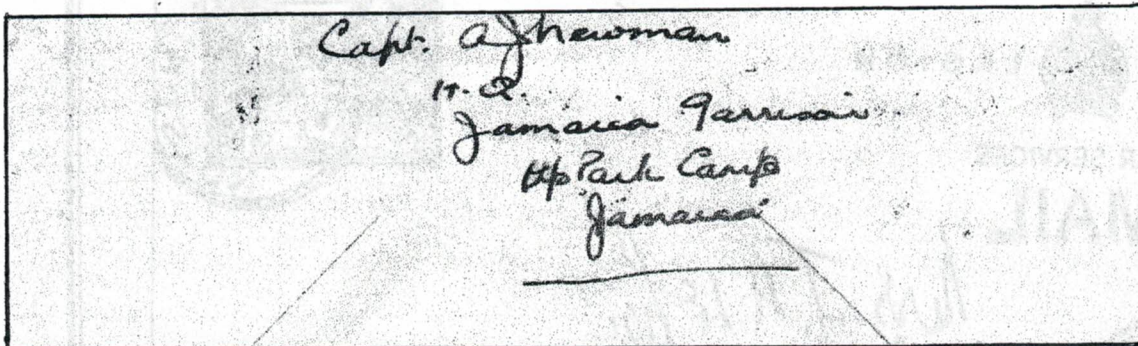 Capt. A J Newman
H.Q.
Jamaica Garrison
Up Park Camp
Jamaica